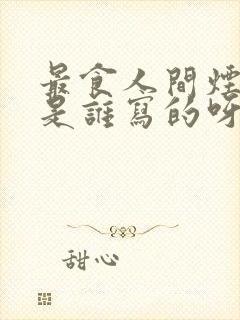 最食人間煙
是誰寫的呀
甜心